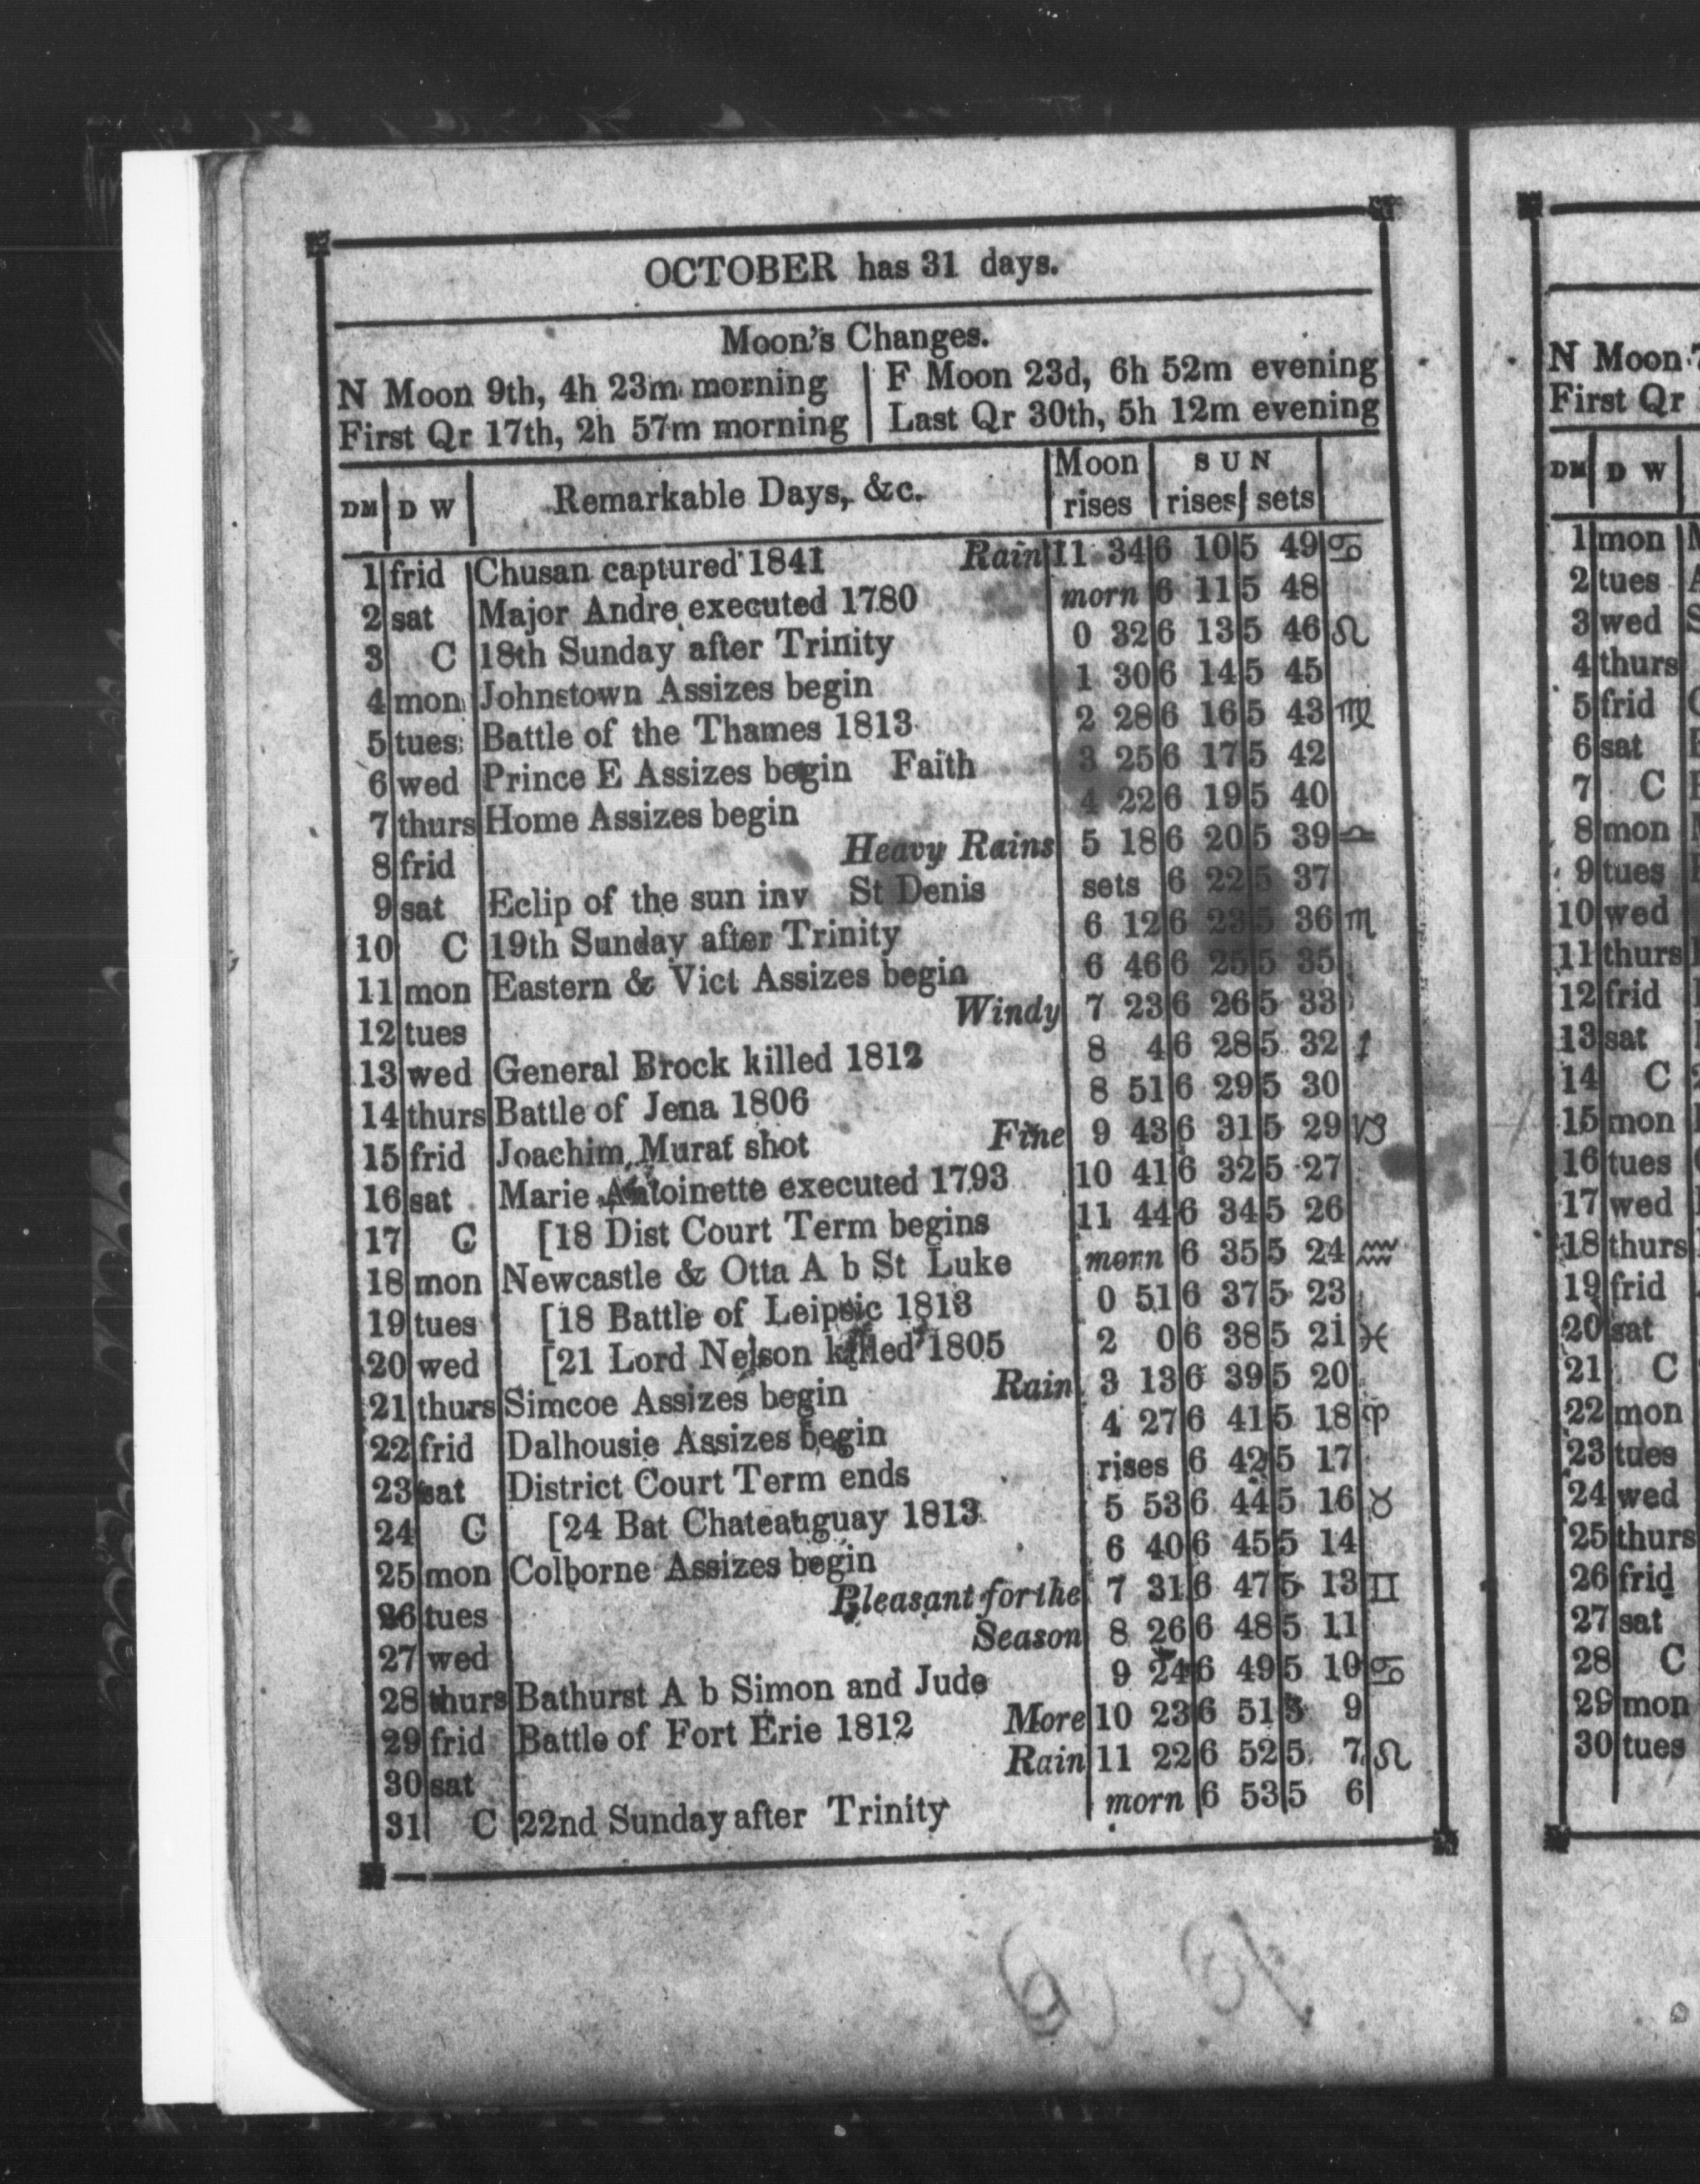 OCTOBER has 31 days.
Moon's Changes.
N Moon 9th, 4h 23m morning | F Moon 23d, 6h 52m evening
First Qr 17th, 2h 57m morning | Last Qr 30th, 5h 12m evening
DM D W Remarkable Days, &c. Moon rises SUN rises sets
1 frid Chusan captured 1841 Rain 11 34 6 10 5 49 ♋
2 sat Major Andre executed 1780 morn 6 11 5 48
3 C 18th Sunday after Trinity 0 32 6 13 5 46 ♌
4 mon Johnstown Assizes begin 1 30 6 14 5 45
5 tues Battle of the Thames 1813 2 28 6 16 5 43 ♍
6 wed Prince E Assizes begin Faith 3 25 6 17 5 42
7 thurs Home Assizes begin 4 22 6 19 5 40
8 frid Heavy Rains 5 18 6 20 5 39 ♎
9 sat Eclip of the sun inv St Denis sets 6 22 5 37
10 C 19th Sunday after Trinity 6 12 6 23 5 36 ♏
11 mon Eastern & Vict Assizes begin 6 46 6 25 5 35
12 tues Windy 7 23 6 26 5 33
13 wed General Brock killed 1812 8 4 6 28 5 32 ♐
14 thurs Battle of Jena 1806 8 51 6 29 5 30
15 frid Joachim Murat shot Fine 9 43 6 31 5 29 ♑
16 sat Marie Antoinette executed 1793 10 41 6 32 5 27
17 C [18 Dist Court Term begins 11 44 6 34 5 26
18 mon Newcastle & Otta A b St Luke morn 6 35 5 24 ♒
19 tues [18 Battle of Leipsic 1813 0 51 6 37 5 23
20 wed [21 Lord Nelson killed 1805 2 0 6 38 5 21 ♓
21 thurs Simcoe Assizes begin Rain 3 13 6 39 5 20
22 frid Dalhousie Assizes begin 4 27 6 41 5 18 ♈
23 sat District Court Term ends rises 6 42 5 17
24 C [24 Bat Chateauguay 1813 5 53 6 44 5 16 ♉
25 mon Colborne Assizes begin 6 40 6 45 5 14
26 tues Pleasant for the 7 31 6 47 5 13 ♊
27 wed Season 8 26 6 48 5 11
28 thurs Bathurst A b Simon and Jude 9 24 6 49 5 10 ♋
29 frid Battle of Fort Erie 1812 More 10 23 6 51 5 9
30 sat Rain 11 22 6 52 5 7 ♌
31 C 22nd Sunday after Trinity morn 6 53 5 6
N Moon
First Qr
DM D W
1 mon
2 tues
3 wed
4 thurs
5 frid
6 sat
7 C
8 mon
9 tues
10 wed
11 thurs
12 frid
13 sat
14 C
15 mon
16 tues
17 wed
18 thurs
19 frid
20 sat
21 C
22 mon
23 tues
24 wed
25 thurs
26 frid
27 sat
28 C
29 mon
30 tues